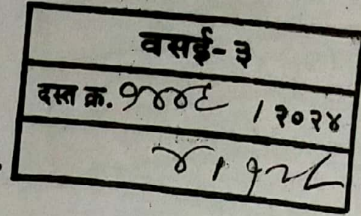 वसई-३
दस्त क्र. १४४६ / २०२४
४ / १२८